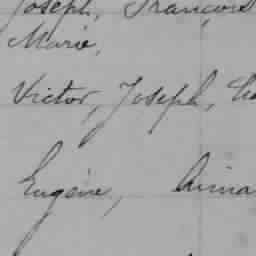 Joseph, François
Marie,
Victor, Joseph,
Eugène,